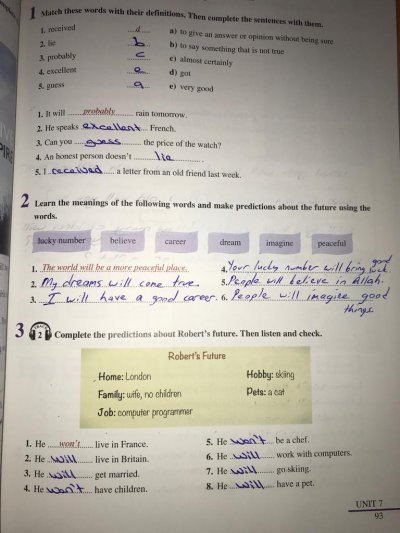 1 Match these words with their definitions. Then complete the sentences with them.
1. received d a) to give an answer or opinion without being sure
2. lie b b) to say something that is not true
3. probably c c) almost certainly
4. excellent e d) got
5. guess a e) very good
1. It will probably rain tomorrow.
2. He speaks excellent French.
3. Can you guess the price of the watch?
4. An honest person doesn't lie.
5. I received a letter from an old friend last week.
2 Learn the meanings of the following words and make predictions about the future using the
words.
lucky number believe career dream imagine peaceful
1. The world will be a more peaceful place. 4. Your lucky number will bring good luck
2. My dreams will come true. 5. People will believe in Allah.
3. I will have a good career. 6. People will imagine good
things
3 TRACK 2 Complete the predictions about Robert's future. Then listen and check.
Robert's Future
Home: London Hobby: skiing
Family: wife, no children Pets: a cat
Job: computer programmer
1. He won't live in France. 5. He won't be a chef.
2. He will live in Britain. 6. He will work with computers.
3. He will get married. 7. He will go skiing.
4. He won't have children. 8. He will have a pet.
UNIT 7
93